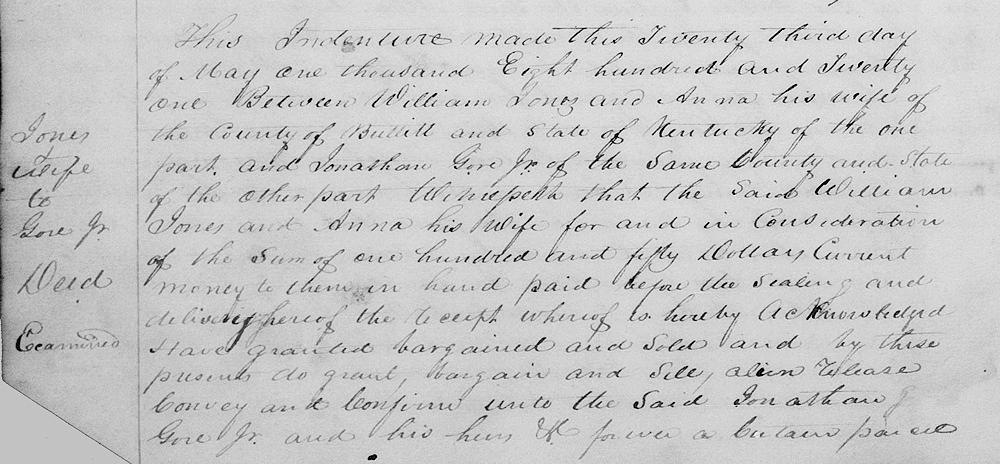 This Indenture made this Twenty third day
of May one thousand Eight hundred and Twenty
one Between William Jones and Anna his wife of
the County of Bullitt and State of Kentucky of the one
part. and Jonathan Gore Jr. of the Same County and State
of the other part Witnesseth that the Said William
Jones and Anna his Wife for and in Consideration
of the Sum of one hundred and fifty Dollars Current
money to them in hand paid before the Sealing and
delivery hereof the Receipt whereof is hereby Acknowledged
Have granted bargained and Sold and by these
presents do grant, bargain and Sell, alien Release
Convey and Confirm unto the Said Jonathan
Gore Jr. and his heirs &c forever a Certain parcel
Jones
Wife
to
Gore Jr.
Deed
Examined